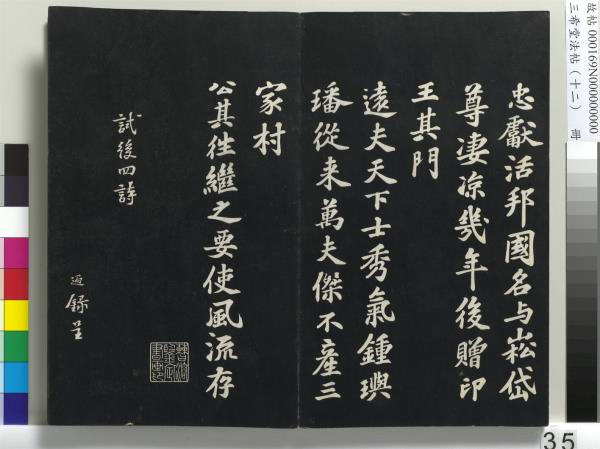 忠獻活邦國名与崧岱
尊凄凉幾年後贈印
王其門
遠夫天下士秀氣鍾璵
璠從来萬夫傑不產三
家村
公其往繼之要使風流存
試後四詩
過錄呈
故帖 000169N000000000
三希堂法帖（十二） 冊
35